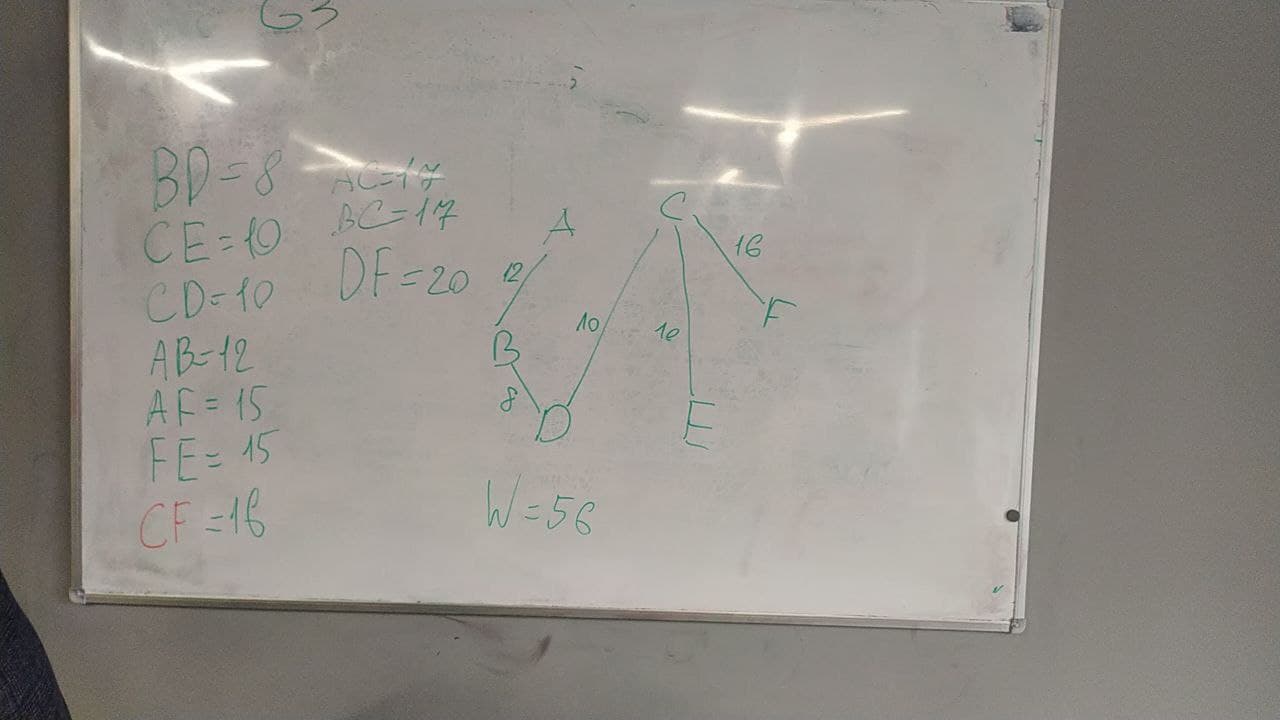 G3
BD=8
CE=10
CD=10
AB=12
AF=15
FE=15
CF=16
AC=17
BC=17
DF=20
A
C
12
16
B
10
10
F
8
D
E
W=56